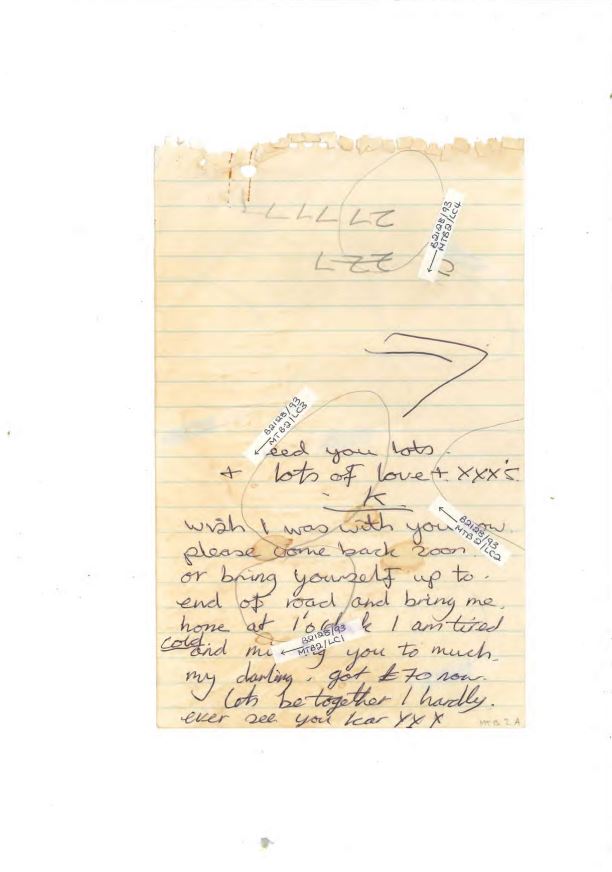 ← B2128/93
MTB2/LC4
← B2128/93
MTB2/LC3
eed you lots.
+ lots of love + XXX's
K
← B2128/93
MTB2/LC2
wish I was with you now.
please come back soon.
or bring yourself up to.
end of road and bring me.
home at 1 o'clock I am tired
cold
← B2128/93
MTB2/LC1
and mi g you to much.
my darling. got £70 now.
Lets be together I hardly.
ever see you Kar XXX
MTB 2 A